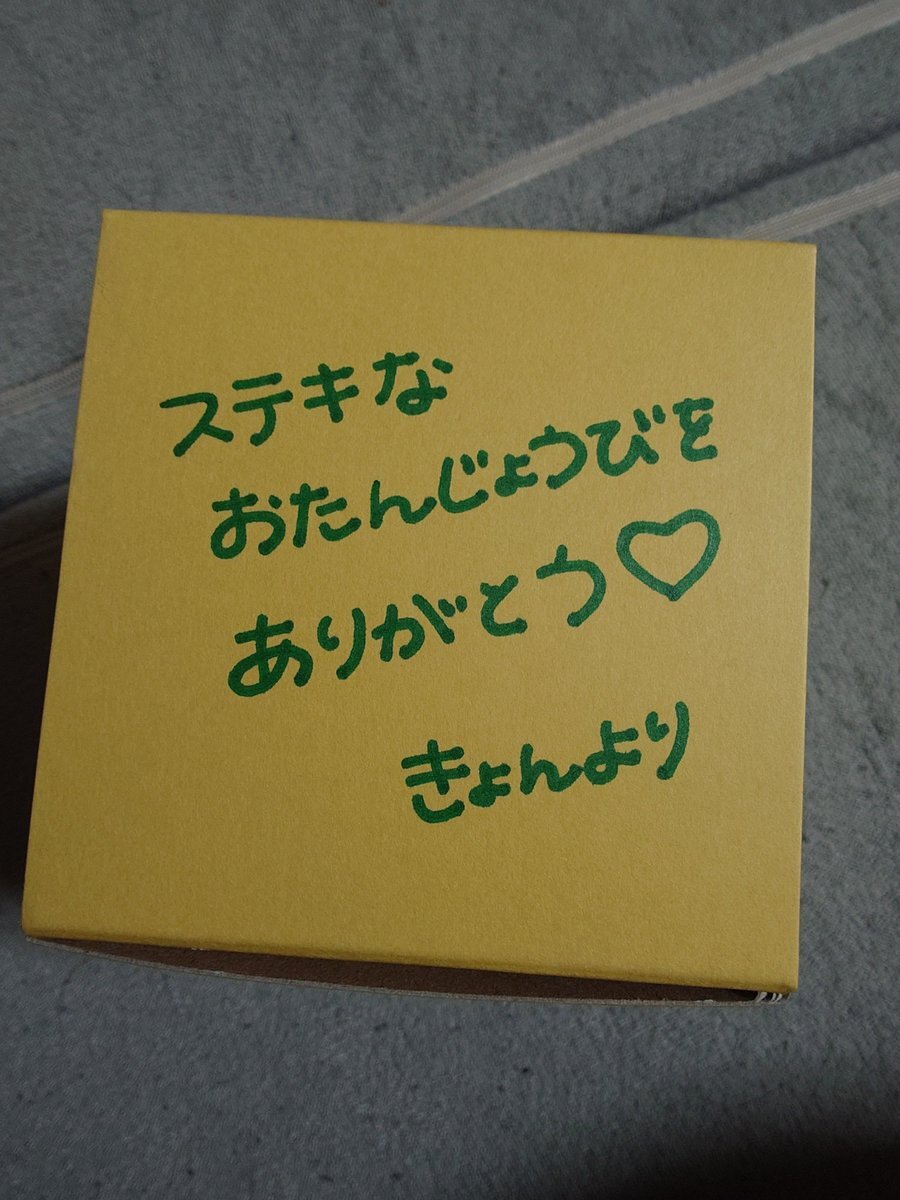 ステキな
おたんじょうびを
ありがとう♡
きょんより